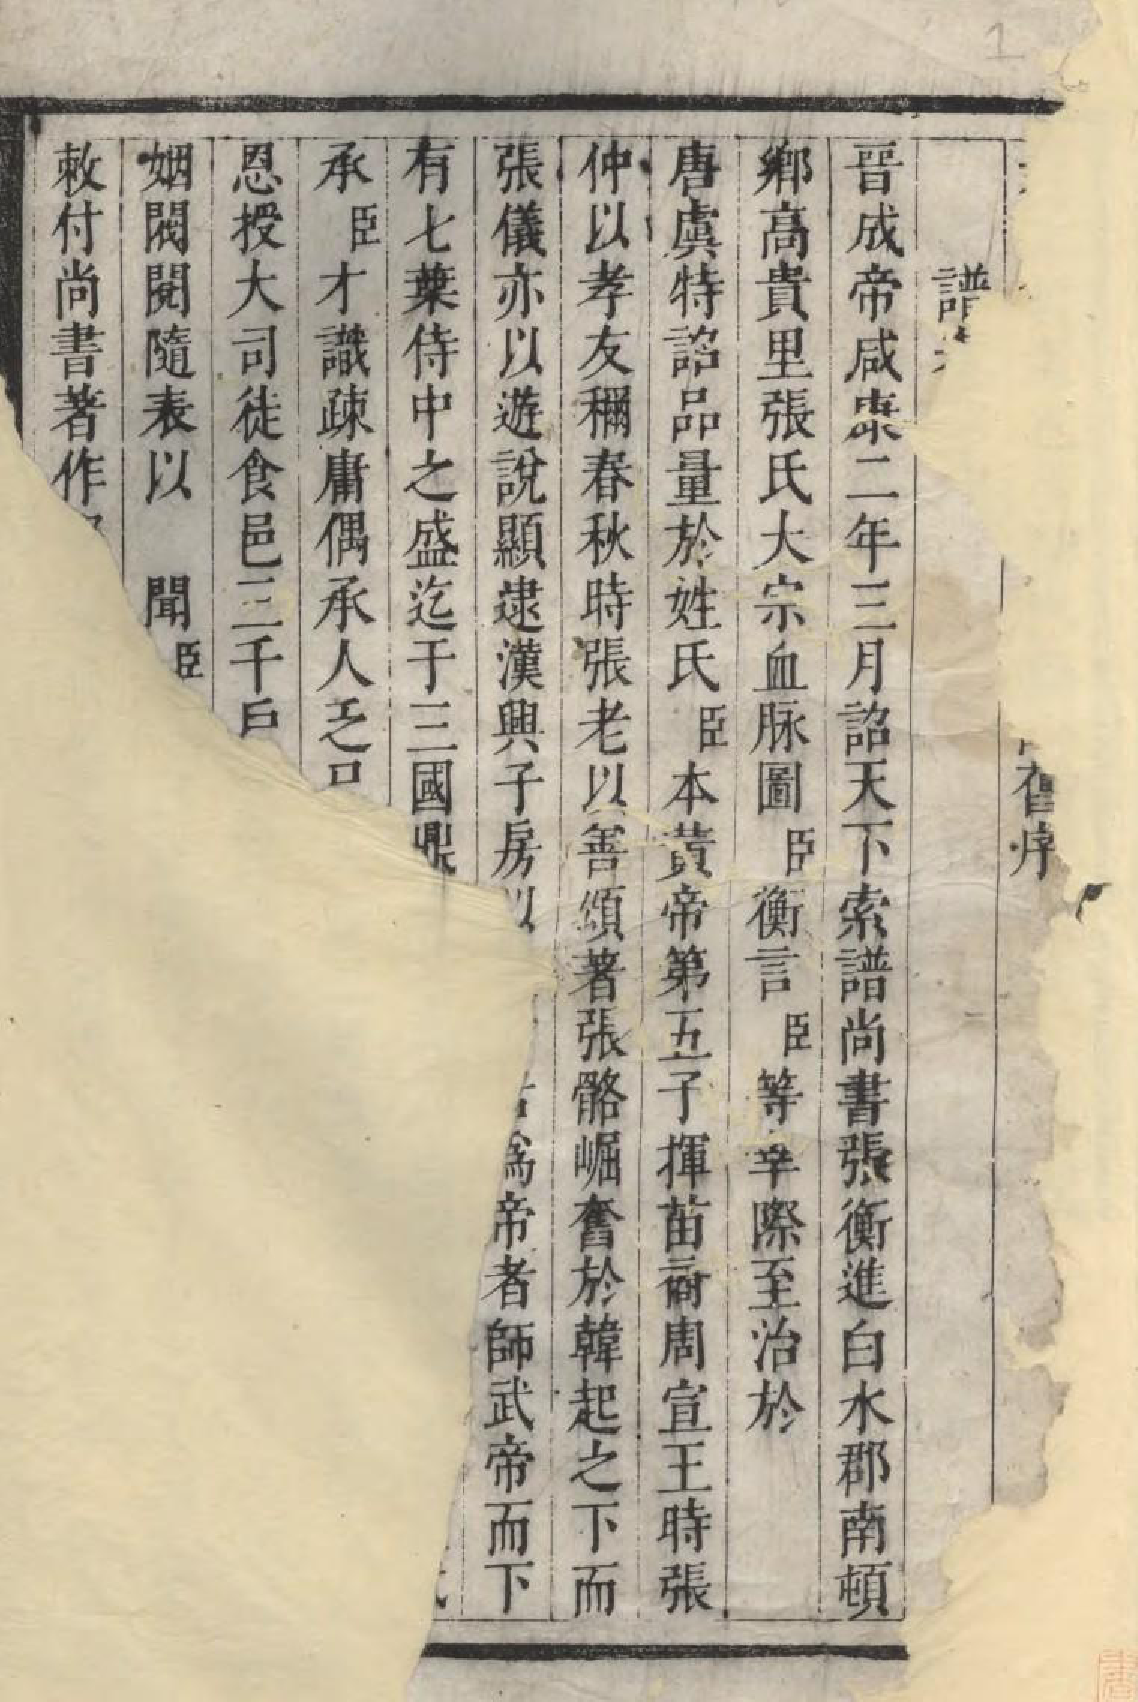 舊序
譜
晉成帝咸康二年三月詔天下索譜尚書張衡進白水郡南頓
鄉高貴里張氏大宗血脉圖臣衡言臣等幸際至治於
唐虞特詔品量於姓氏臣本黃帝第五子揮苗裔周宣王時張
仲以孝友稱春秋時張老以善頌著張骼崛奮於韓起之下而
張儀亦以遊說顯逮漢興子房以 為帝者師武帝而下
有七葉侍中之盛迄于三國鼎
承臣才識疎庸偶承人乏
恩授大司徒食邑三千戶
姻閥閱隨表以 聞臣
敕付尚書著作
1